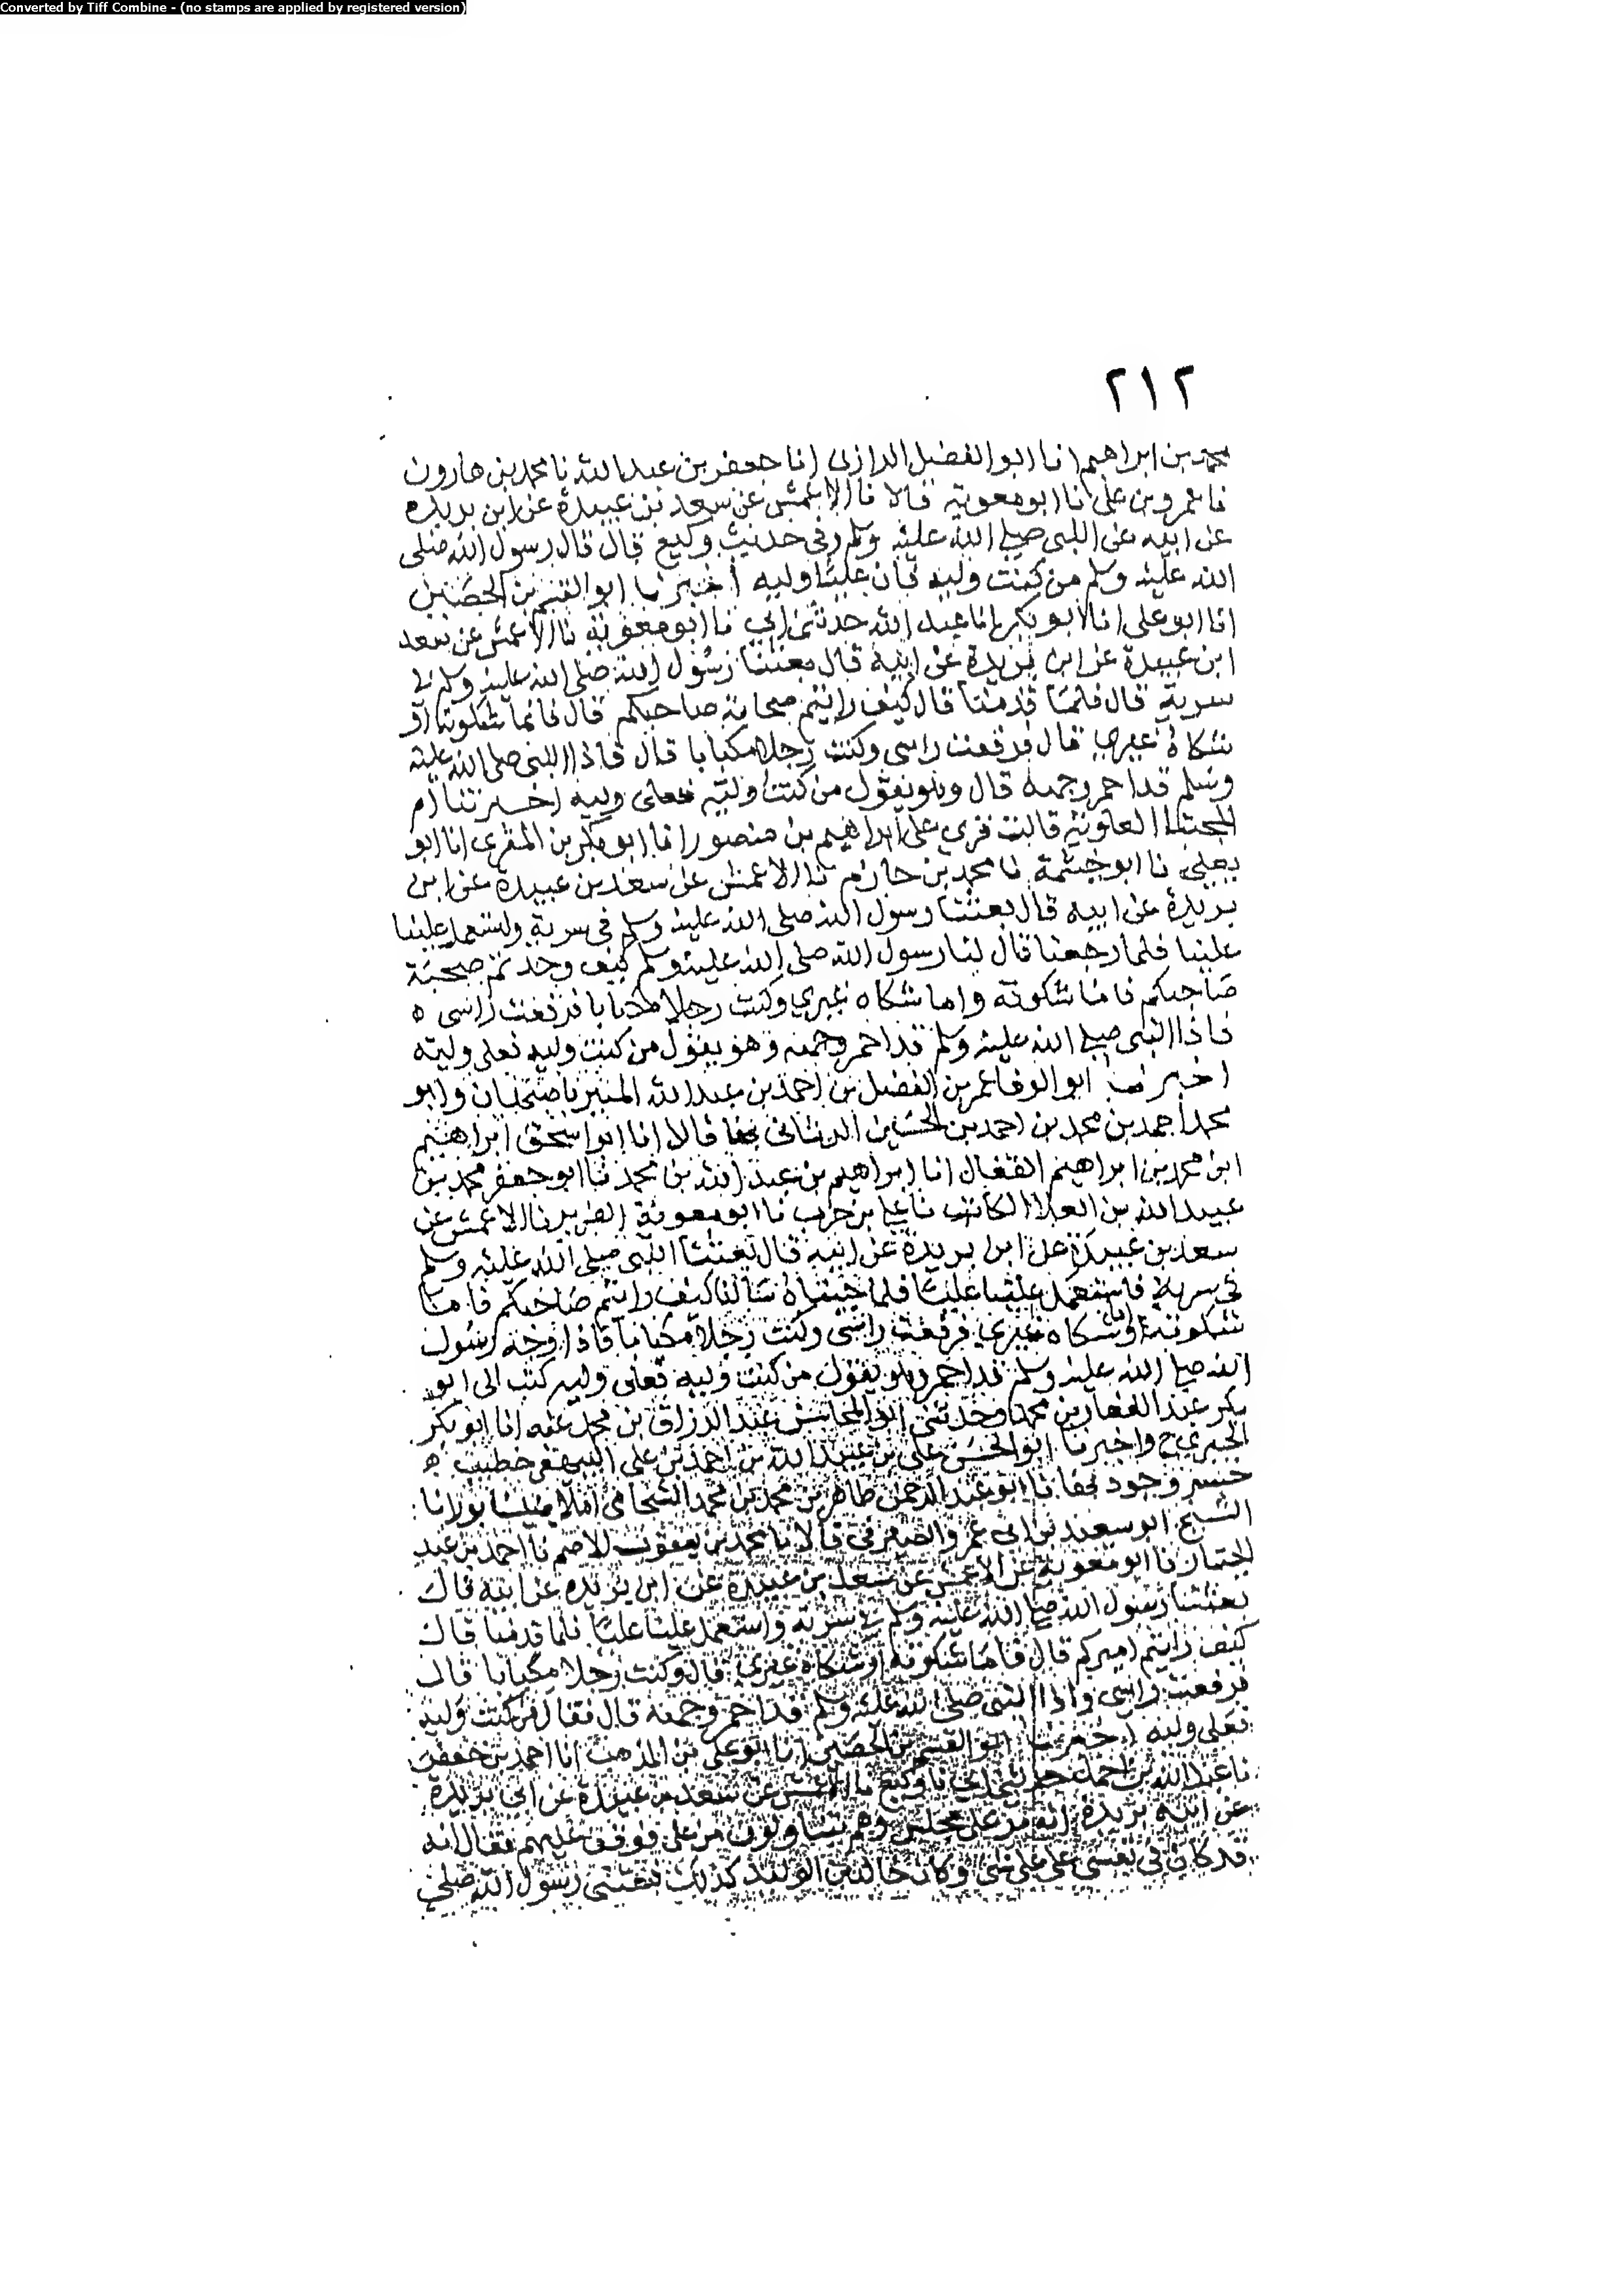 Converted by Tiff Combine - (no stamps are applied by registered version)
٢١٢
محمد بن ابراهيم انا ابو الفضل الرازي انا جعفر بن عبد الله نا محمد بن هارون
نا عمرو بن علي نا ابو معوية قالا نا الاعمش عن سعد بن عبيدة عن ابن بريدة
عن ابيه عن النبي صلى الله عليه وسلم وفي حديث وكيع قال قال رسول الله صلى
الله عليه وسلم من كنت وليه فان عليا وليه اخبرنا ابو القسم بن الحصين
انا ابو علي انا ابو بكر انا عبد الله حدثني ابي نا ابو معوية نا الاعمش عن سعد
ابن عبيدة عن ابن بريدة عن ابيه قال بعثنا رسول الله صلى الله عليه وسلم في
سرية قال فلما قدمنا قال كيف رايتم صحابة صاحبكم قال فاما شكوته او
شكاه غيري قال فرفعت راسي وكنت رجلا مكبابا قال فاذا النبي صلى الله عليه
وسلم قد احمر وجهه قال وهو يقول من كنت وليه فعلي وليه اخبرتنا ام
المجتبا العلوية قالت قري على ابراهيم بن منصور انا ابو بكر بن المقري انا ابو
يعلى نا ابو خيثمة نا محمد بن خازم نا الاعمش عن سعد بن عبيدة عن ابن
بريدة عن ابيه قال بعثنا رسول الله صلى الله عليه وسلم في سرية واستعمل علينا
عليا فلما رجعنا قال لنا رسول الله صلى الله عليه وسلم كيف وجدتم صحبة
صاحبكم فاما شكوته واما شكاه غيري وكنت رجلا مكبابا فرفعت راسي ه
فاذا النبي صلى الله عليه وسلم قد احمر وجهه وهو يقول من كنت وليه فعلي وليه
اخبرنا ابو الوفا عمر بن الفضل بن احمد بن عبد الله المميز باصبهان وابو
محمد احمد بن محمد بن احمد بن الحسين بها قالا انا ابو اسحق ابراهيم
ابن محمد بن ابراهيم القفال انا ابراهيم بن عبد الله بن محمد نا ابو جعفر محمد بن
عبيد الله بن العلا الكاتب نا علي بن حرب نا ابو معوية الضرير نا الاعمش عن
سعد بن عبيدة عن ابن بريدة عن ابيه قال بعثنا النبي صلى الله عليه وسلم
في سرية فاستعمل علينا عليا فلما جيناه سالنا كيف رايتم صاحبكم فاما
شكوته واما شكاه غيري فرفعت راسي وكنت رجلا مكبابا فاذا وجه رسول
الله صلى الله عليه وسلم قد احمر وهو يقول من كنت وليه فعلي وليه كتب الى ابو
بكر عبد الغفار بن محمد وحدثني ابو المحاسن عبد الرزاق بن محمد عنه انا ابو بكر
الحيري ح واخبرنا ابو الحسن علي بن عبيد الله بن احمد بن علي البيهقي خطيب
خسروجرد بها نا ابو عبد الرحمن طاهر بن محمد بن محمد الشحامي املا بنيسابور انا
الشيخ ابو سعيد بن ابي عمرو الصيرفي قالا نا محمد بن يعقوب الاصم نا احمد بن عبد
الجبار نا ابو معوية عن الاعمش عن سعد بن عبيدة عن ابن بريدة عن ابيه قال
بعثنا رسول الله صلى الله عليه وسلم في سرية واستعمل علينا عليا فلما قدمنا قال
كيف رايتم اميركم قال فاما شكوته او شكاه غيري قال وكنت رجلا مكبابا قال
فرفعت راسي واذا النبي صلى الله عليه وسلم قد احمر وجهه قال فقال من كنت وليه
فعلي وليه اخبرنا ابو القسم بن الحصين انا ابو علي بن المذهب انا احمد بن جعفر
نا عبد الله بن احمد حدثني ابي نا وكيع نا الاعمش عن سعد بن عبيدة عن ابن بريدة
عن ابيه بريدة انه مر على مجلس وهم يتناولون من علي فوقف عليهم فقال انه
قد كان في نفسي على علي شي وكان خالد بن الوليد كذلك فبعثني رسول الله صلى